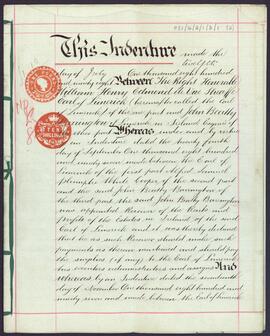 This Indenture made the
twelfth
day of July One thousand eight hundred
and ninety eight Between The Right Honorable
William Henry Edmond de Vere Sheaffe
Earl of Limerick (hereinafter called the Earl
of Limerick) of the one part and John Beatty
Barrington of Limerick in Ireland Esquire
of the other part Whereas
under and by virtue
of an Indenture dated the
day of September One thousand eight hundred
and ninety seven made between the Earl of
Limerick of the first part
Cooper of the second part
and the said John Beatty Barrington of
the third part the said John Beatty Barrington
was appointed Receiver of the Rents and
Profits of the Estates in Ireland of the said
Earl of Limerick and it was thereby declared
that he as such Receiver should make such
payments as therein mentioned and should pay
the surplus (if any) to the Earl of Limerick
his executors administrators and assigns And
whereas by an Indenture dated the second
day of November One thousand eight hundred and
ninety seven and made between the Earl of Limerick
TEN
SHILLINGS